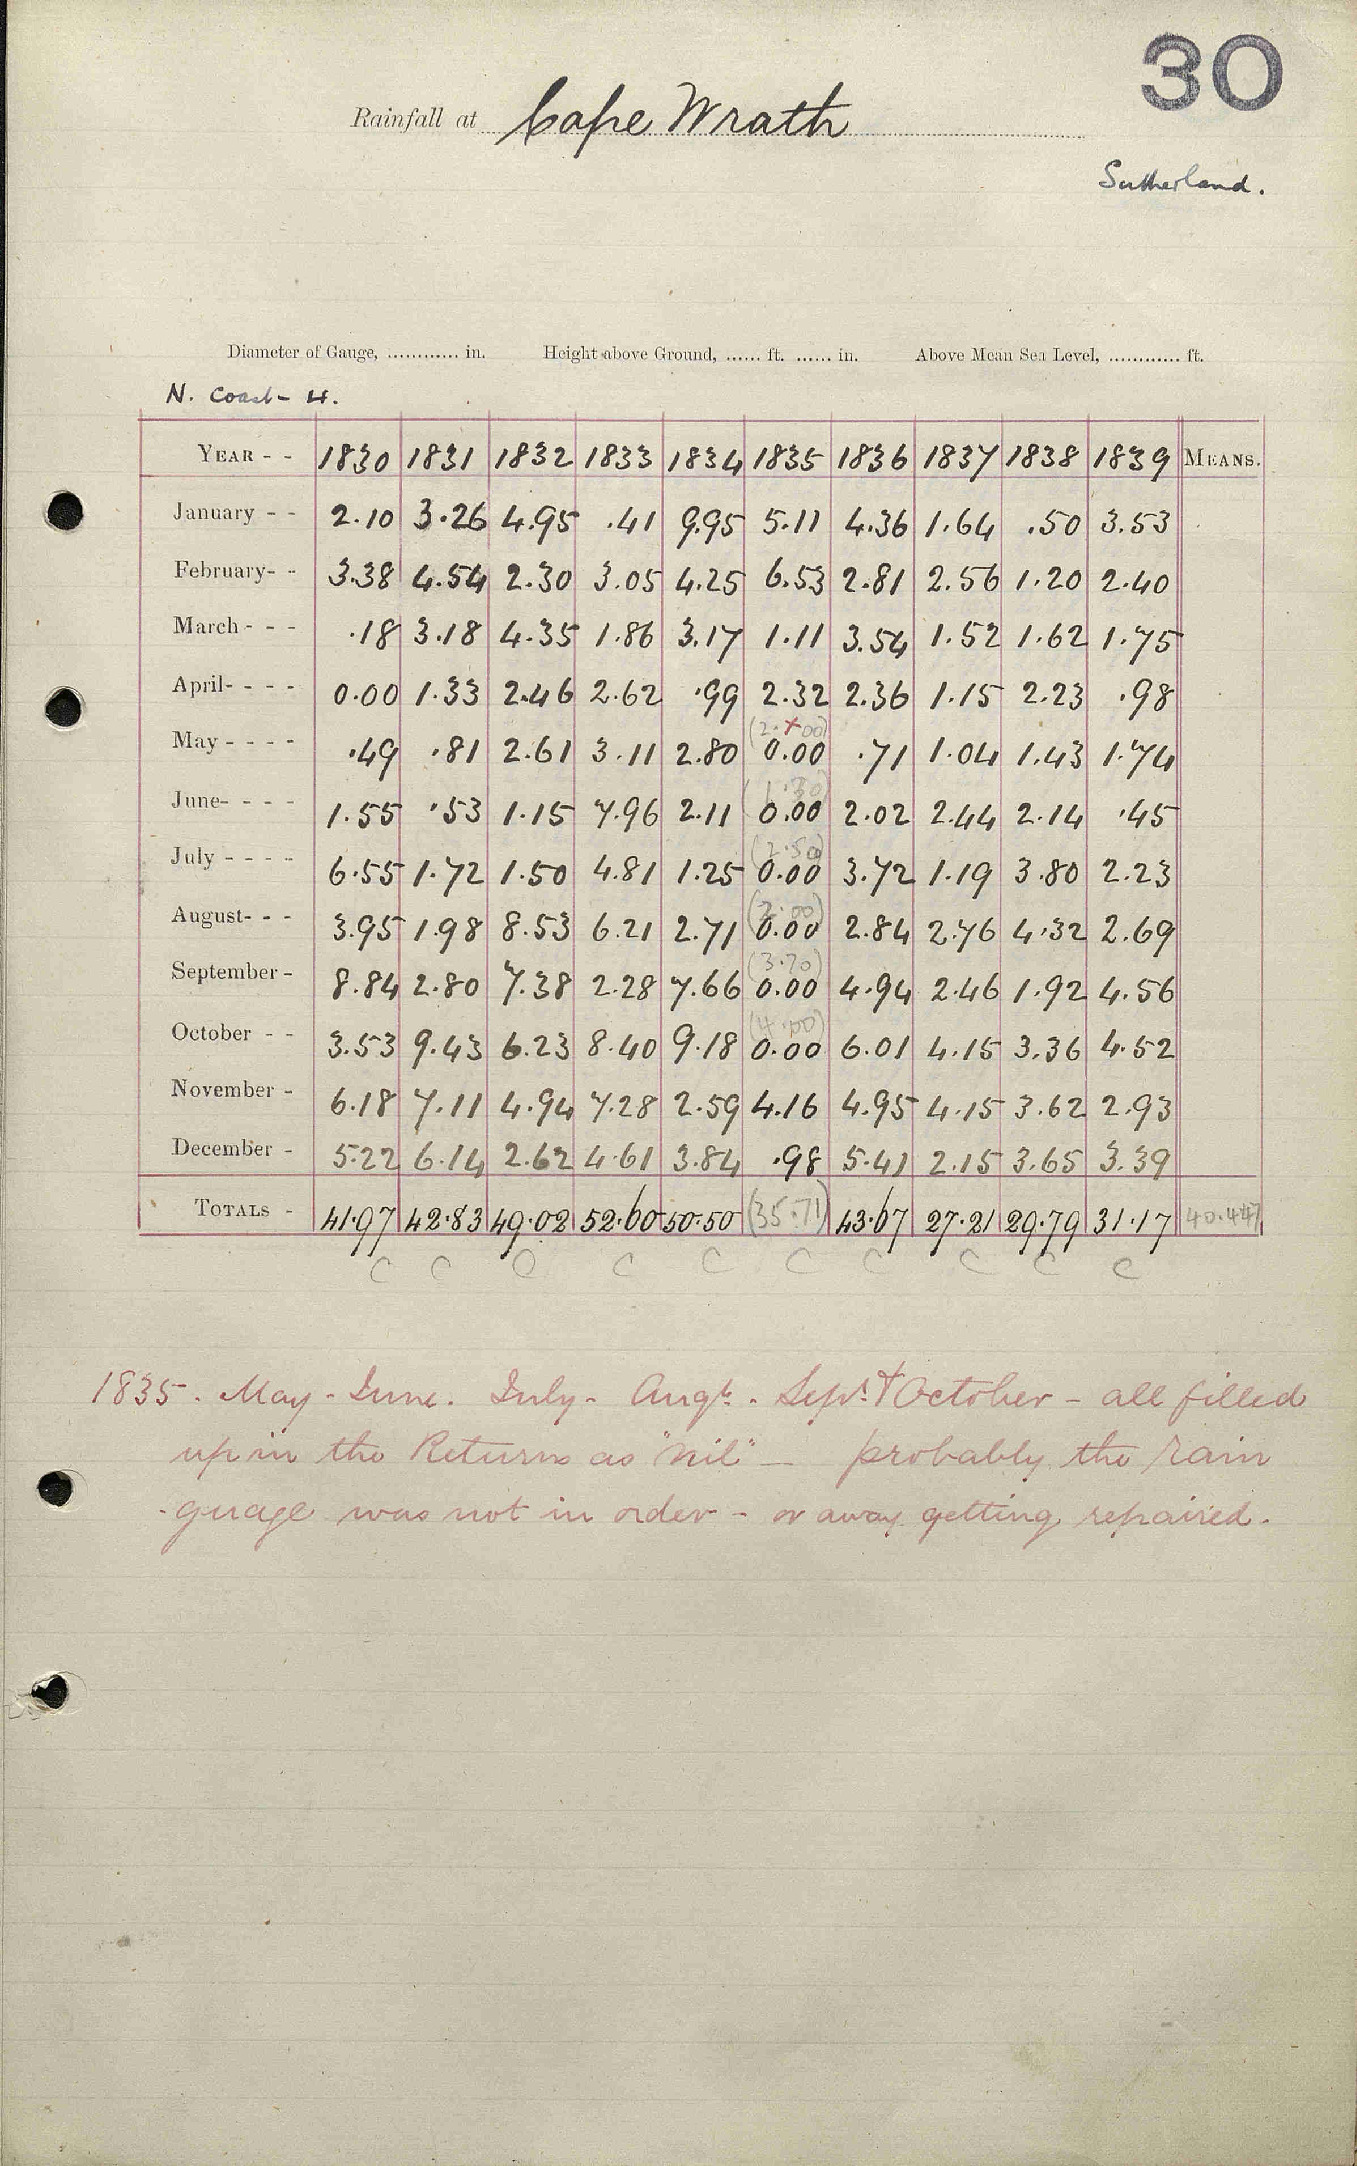 30
Rainfall at Cape Wrath
Sutherland.
Diameter of Gauge, ............ in. Height above Ground, ...... ft. ...... in. Above Mean Sea Level, ............ ft.
N. Coast - 4.
YEAR - - 1830 1831 1832 1833 1834 1835 1836 1837 1838 1839 MEANS.
January - - 2.10 3.26 4.95 .41 9.95 5.11 4.36 1.64 .50 3.53
February- - 3.38 4.54 2.30 3.05 4.25 6.53 2.81 2.56 1.20 2.40
March - - - .18 3.18 4.35 1.86 3.17 1.11 3.54 1.52 1.62 1.75
April- - - - 0.00 1.33 2.46 2.62 .99 2.32 2.36 1.15 2.23 .98
(2.00)
May - - - - .49 .81 2.61 3.11 2.80 0.00 .71 1.04 1.43 1.74
(1.30)
June- - - - 1.55 .53 1.15 7.96 2.11 0.00 2.02 2.44 2.14 .45
(2.50)
July - - - - 6.55 1.72 1.50 4.81 1.25 0.00 3.72 1.19 3.80 2.23
(2.00)
August- - - 3.95 1.98 8.53 6.21 2.71 0.00 2.84 2.76 4.32 2.69
(3.70)
September - 8.84 2.80 7.38 2.28 7.66 0.00 4.94 2.46 1.92 4.56
(4.00)
October - - 3.53 9.43 6.23 8.40 9.18 0.00 6.01 4.15 3.36 4.52
November - 6.18 7.11 4.94 7.28 2.59 4.16 4.95 4.15 3.62 2.93
December - 5.22 6.14 2.62 4.61 3.84 .98 5.41 2.15 3.65 3.39
TOTALS - 41.97 42.83 49.02 52.60 50.50 (35.71) 43.67 27.21 29.79 31.17 40.447
C C C C C C C C C C
1835. May - June. July - Augt. - Sept. + October - all filled
up in the Returns as "nil" - probably the rain
guage was not in order - or away getting repaired.